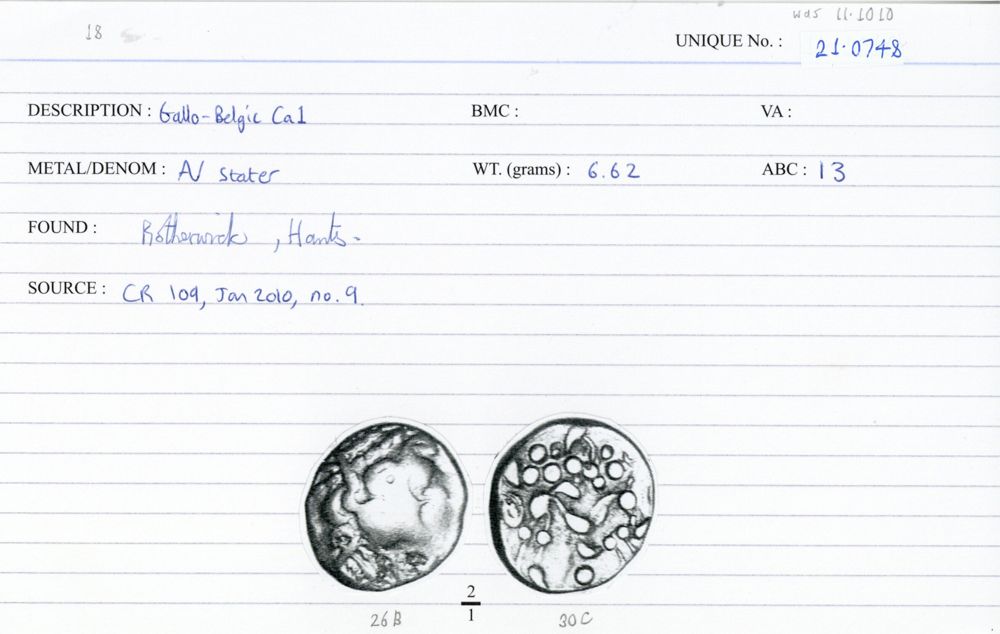 18
was 11.1010
UNIQUE No. : 21.0748
DESCRIPTION : Gallo-Belgic Ca1 BMC : VA :
METAL/DENOM : AV Stater WT. (grams) : 6.62 ABC : 13
FOUND : Rotherwick, Hants.
SOURCE : CR 109, Jan 2010, no. 9.
2
1
26B 30C